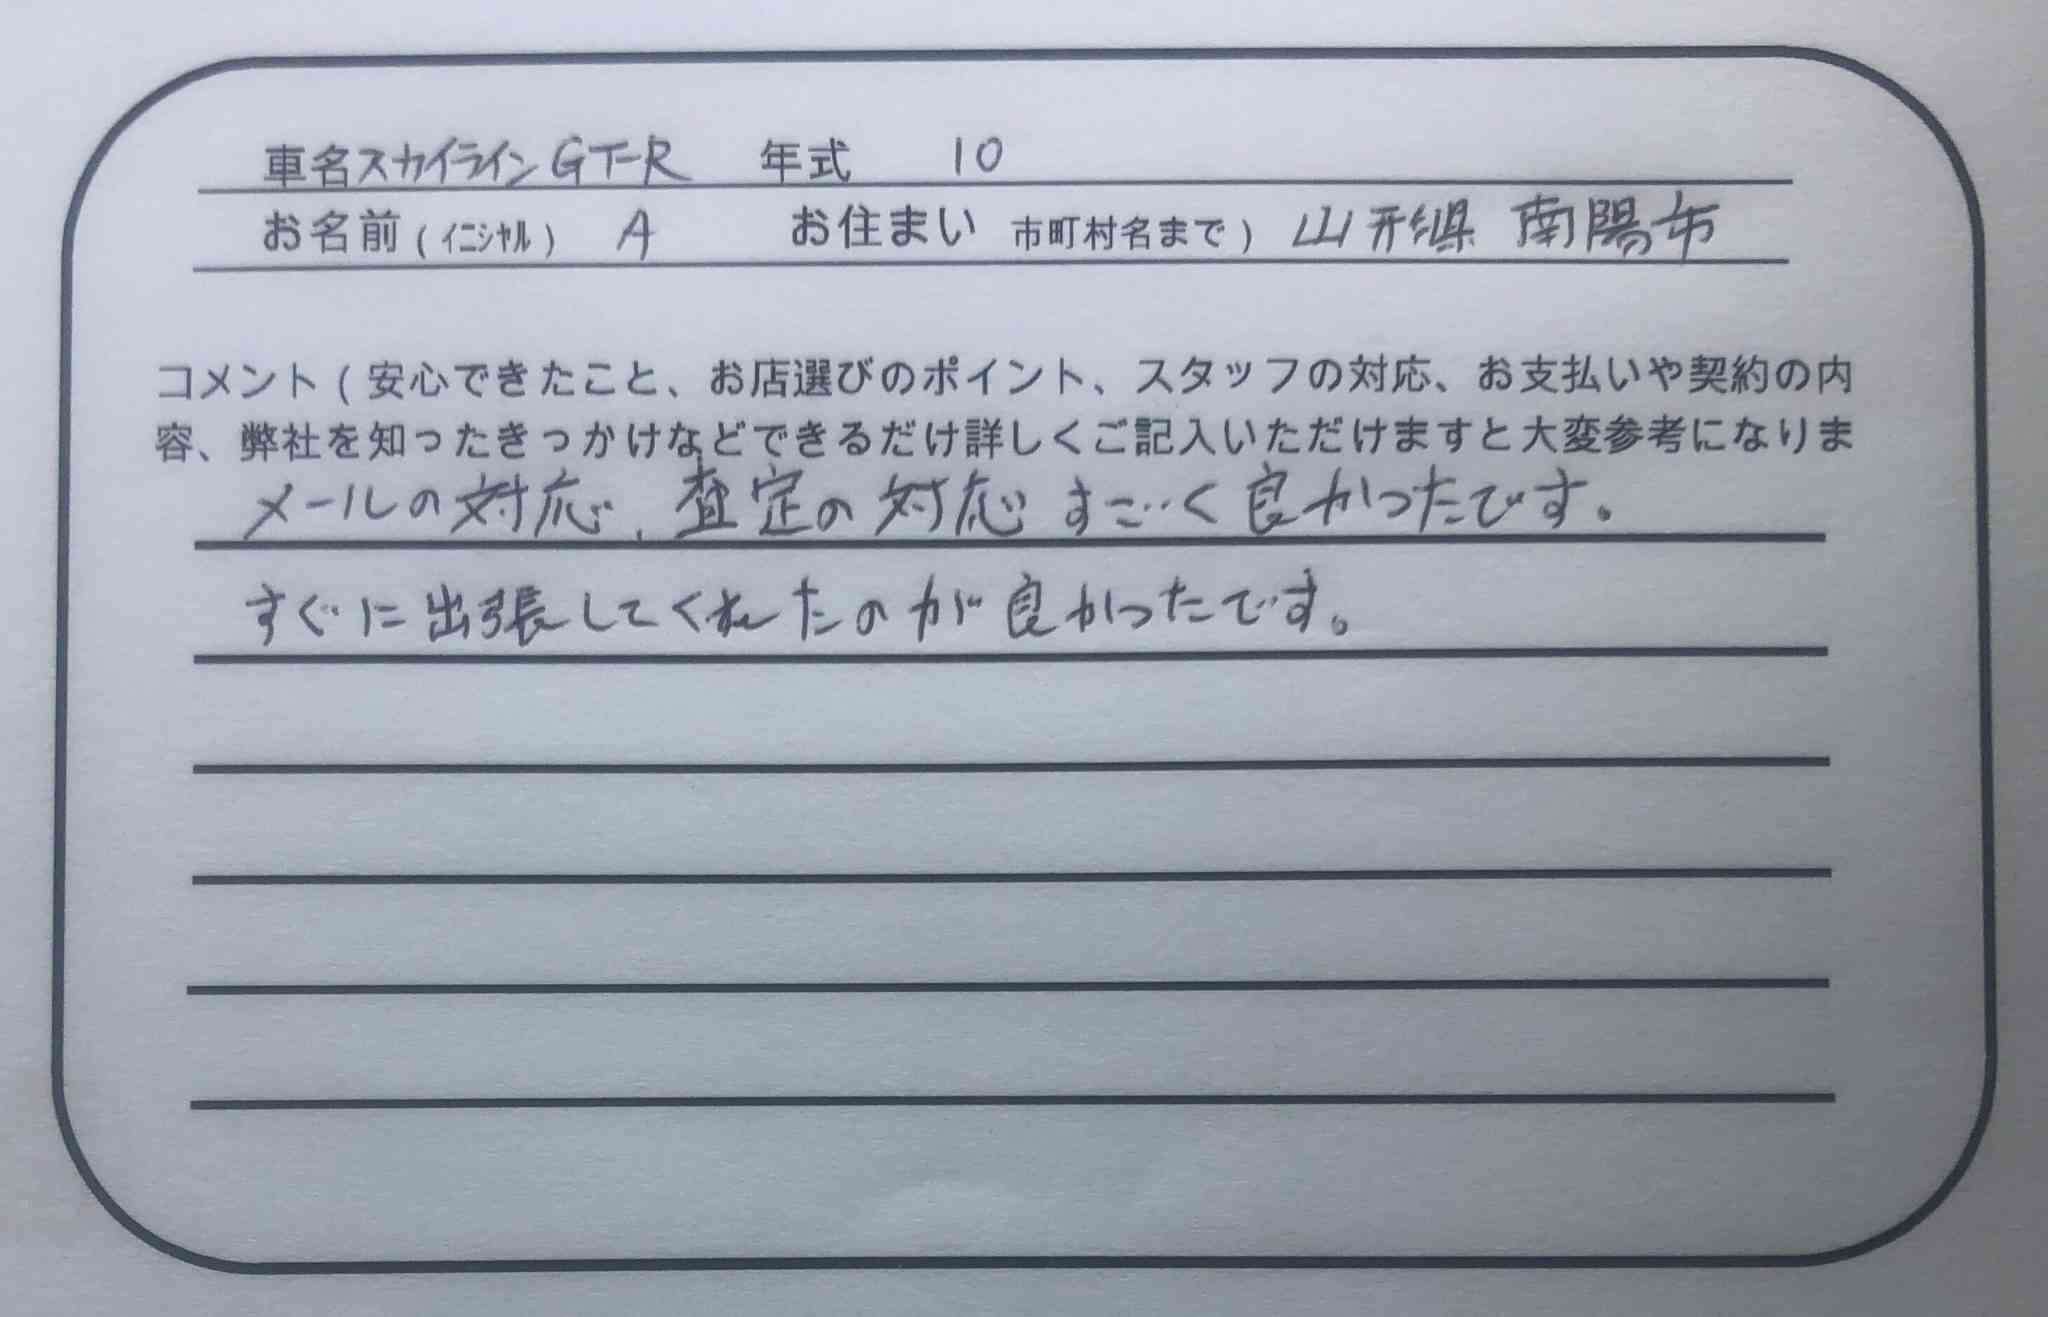 車名スカイラインGT-R 年式 10
お名前(イニシャル) A お住まい 市町村名まで) 山形県 南陽市
コメント(安心できたこと、お店選びのポイント、スタッフの対応、お支払いや契約の内
容、弊社を知ったきっかけなどできるだけ詳しくご記入いただけますと大変参考になりま
メールの対応、査定の対応すごく良かったです。
すぐに出張してくれたのが良かったです。